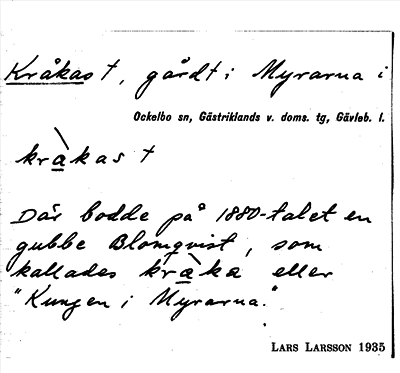 Kråkast, gårdt i Myrarna i
Ockelbo sn, Gästriklands v. doms. tg, Gävleb. l.
kràkast
Där bodde på 1880-talet en
gubbe Blomqvist, som
kallades kràka eller
"Kungen i Myrarna."
LARS LARSSON 1935